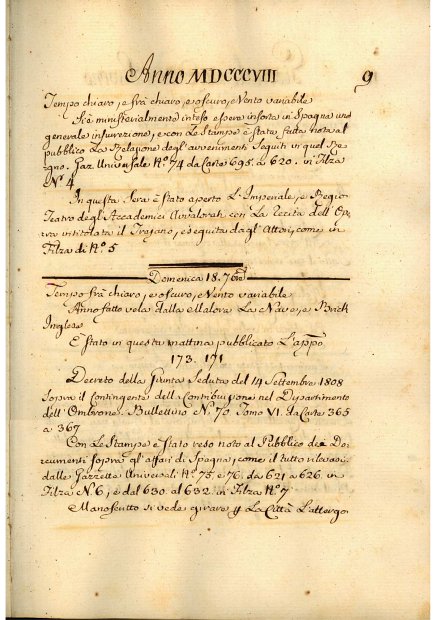 Anno MDCCCVIII 9
Tempo chiaro, e frà chiaro, e oscuro, e Vento variabile
Si è ministerialmente inteso essere insorta in Spagna una
generale insurrezione, e con Le Stampe è stata fatta nota al
pubblico La Relazione degl'avvenimenti seguiti in quel Re-
gno. Gaz. Universale N.º 74 da Carte 695. a 620. in Filza
N.º 4
In questa Sera è stato aperto L'Imperiale, e Regio
Teatro degl'Accademici Avvalorati con La Recita dell'Op-
era intitolata il Trajano, eseguita dagl'Attori, come in
Filza di N.º 5
Domenica 18. 7bre
Tempo frà chiaro, e oscuro, e Vento variabile
Anno fatto vela dalla Malora La Nave, e Brick
Inglese
È stato in questa mattina pubblicato L'appo
173. 171
Decreto della Giunta Seduta del 14 Settembre 1808
sopra il Contingente della Contribuzione nel Dipartimento
dell'Ombrone. Bullettino N.º 70 Tomo VI. da Carte 365
a 367
Con Le Stampe è stato reso noto al Pubblico dei Do-
cumenti sopra gl'affari di Spagna, come il tutto rilevasi
dalle Gazzette Universali N.º 75, e 76. da 621 a 626. in
Filza N.º 6, e dal 630. al 632. in Filza N.º 7
Manoscritto si vede girare p La Città L'attergo